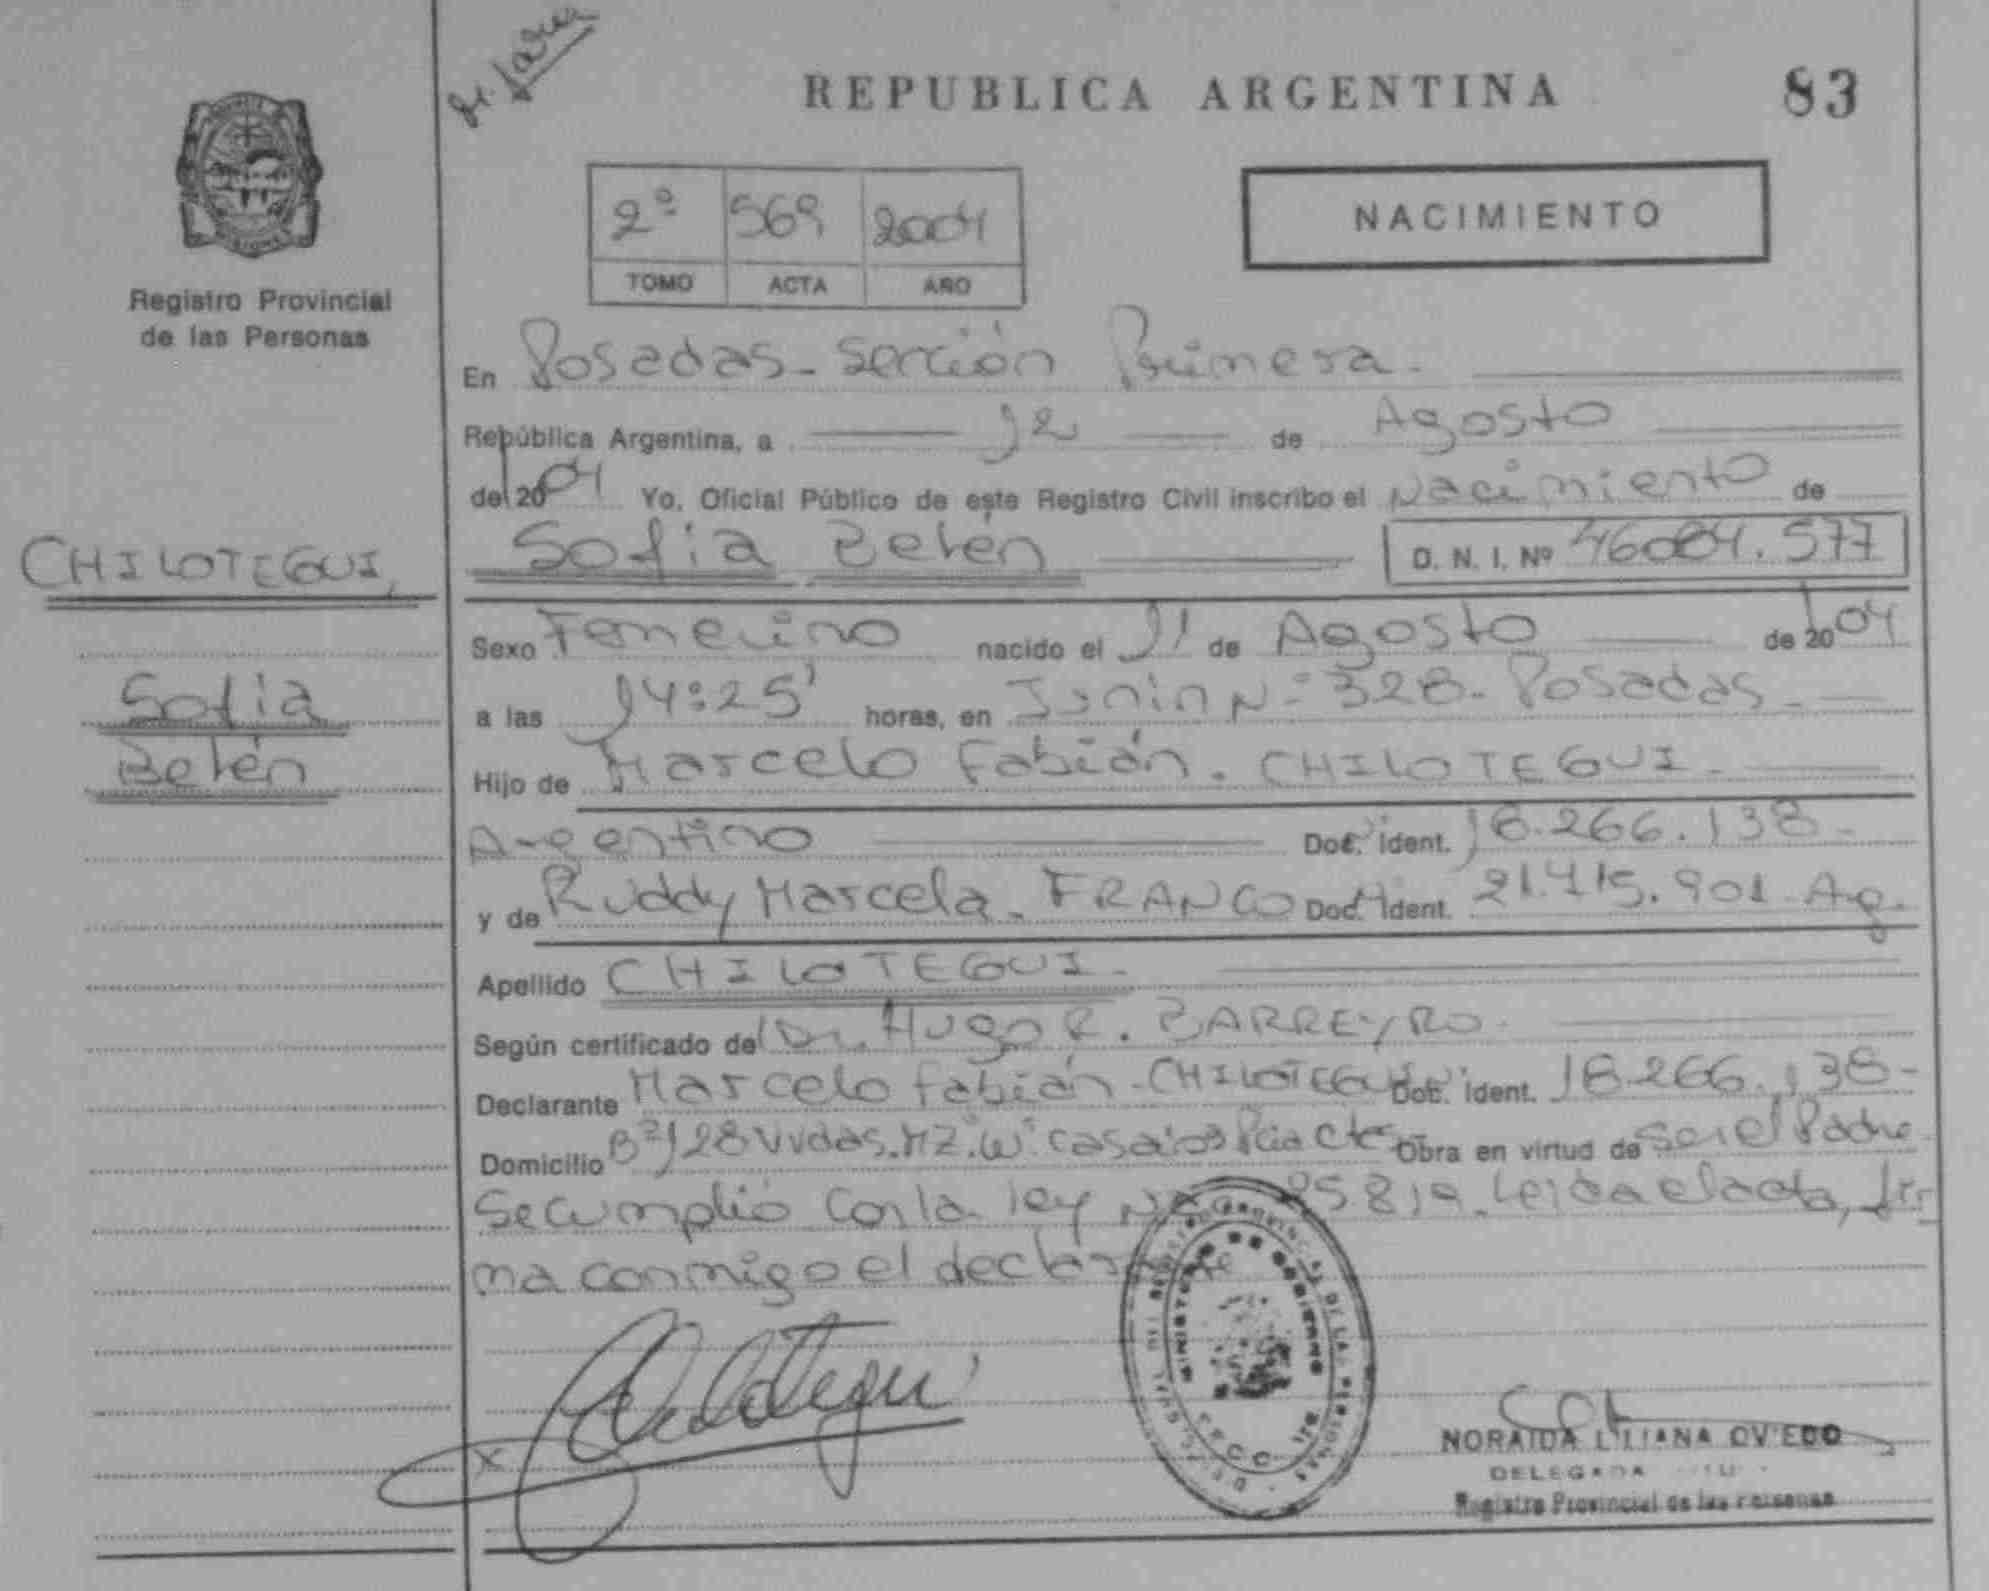 REPUBLICA ARGENTINA 83
Registro Provincial
de las Personas
2º 569 2004
TOMO ACTA AÑO
NACIMIENTO
En Posadas - Sección Primera.
República Argentina, a 12 de Agosto
del 2004 Yo, Oficial Público de este Registro Civil inscribo el Nacimiento de
Sofia Belén D. N. I. Nº 46084.577
CHILOTEGUI,
Sofia
Belén
Sexo Femenino nacido el 11 de Agosto de 2004
a las 14:25' horas, en Junin Nº 328. Posadas -
Hijo de Marcelo Fabián. CHILOTEGUI -
Argentino Doc. ident. 18.266.138 -
y de Ruddy Marcela - FRANCO Doc. ident. 21.415.901 Arg.
Apellido CHILOTEGUI -
Según certificado de Dr. Hugo R. BARREYRO.
Declarante Marcelo Fabián - CHILOTEGUI Doc. ident. 18.266.138 -
Domicilio Bº 128 VVdas. MZ. W. casa Obra en virtud de ser el Padre
Se cumplió con la ley Nº 25.819. Leida el acta, fir
ma conmigo el declarante
MINISTERIO DE GOBIERNO
NORAIDA LILIANA OVIEDO
DELEGADA
Registro Provincial de las Personas